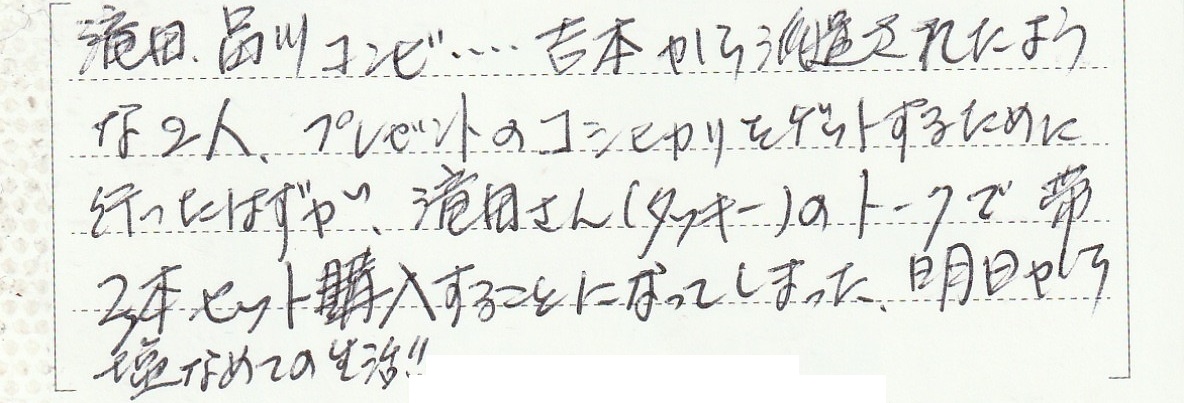 滝田、品川コンビ‥‥吉本から派遣されたよう
な2人、プレゼントのコシヒカリをゲットするために
行ったはずが、滝田さん(タッキー)のトークで帯
3本セット購入することになってしまった、明日から
塩なめての生活!!